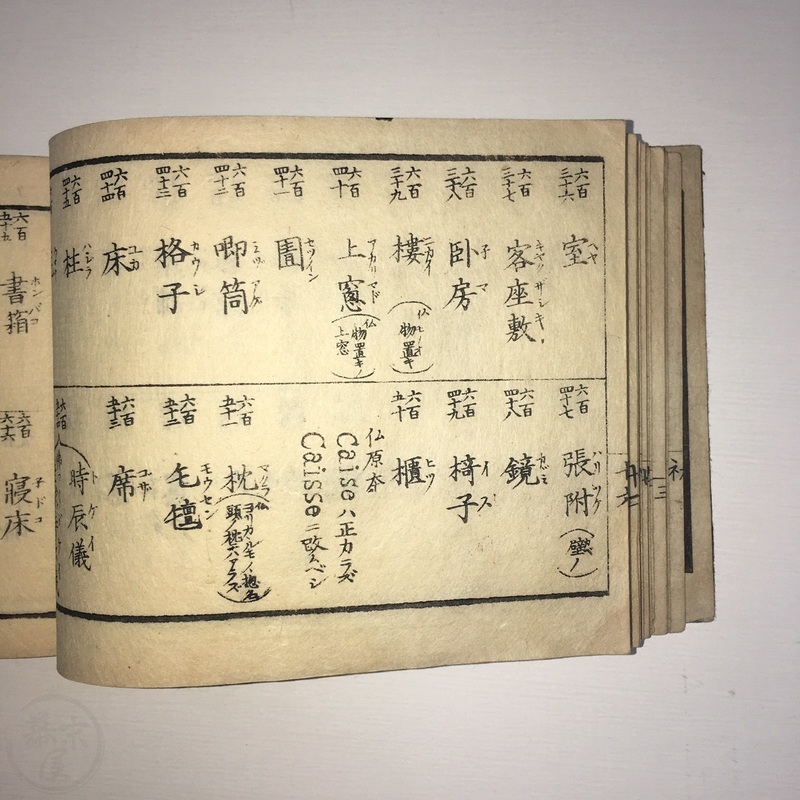 六百三十六 室 ヘヤ
六百三十七 客座敷 キャクザシキ
六百三十八 卧房 子マ
六百三十九 樓 ニカイ (仏 物置キ)
六百四十 上窻 アカリマド (仏 物置キノ上窓)
六百四十一 圊 セツイン
六百四十二 喞筒 ミヅアゲ
六百四十三 格子 カウシ
六百四十四 床 ユカ
六百四十五 柱 ハシラ
六百四十七 張附 ハリツケ (壁ノ)
六百四十八 鏡 カゞミ
六百四十九 椅子 イス
六百五十 櫃 ヒツ
仏原本
Caise ハ正カラズ
Caisse ニ改ムベシ
六百五十一 枕 マクラ (仏 ヨリカヽルモノノ惣名 頭ノ枕ニハアラズ)
六百五十二 毛氊 モウセン
六百五十三 席 ゴザ
六百 時辰儀 トケイ
六百五十五 書箱 ホンバコ
六百 寢床 子ドコ